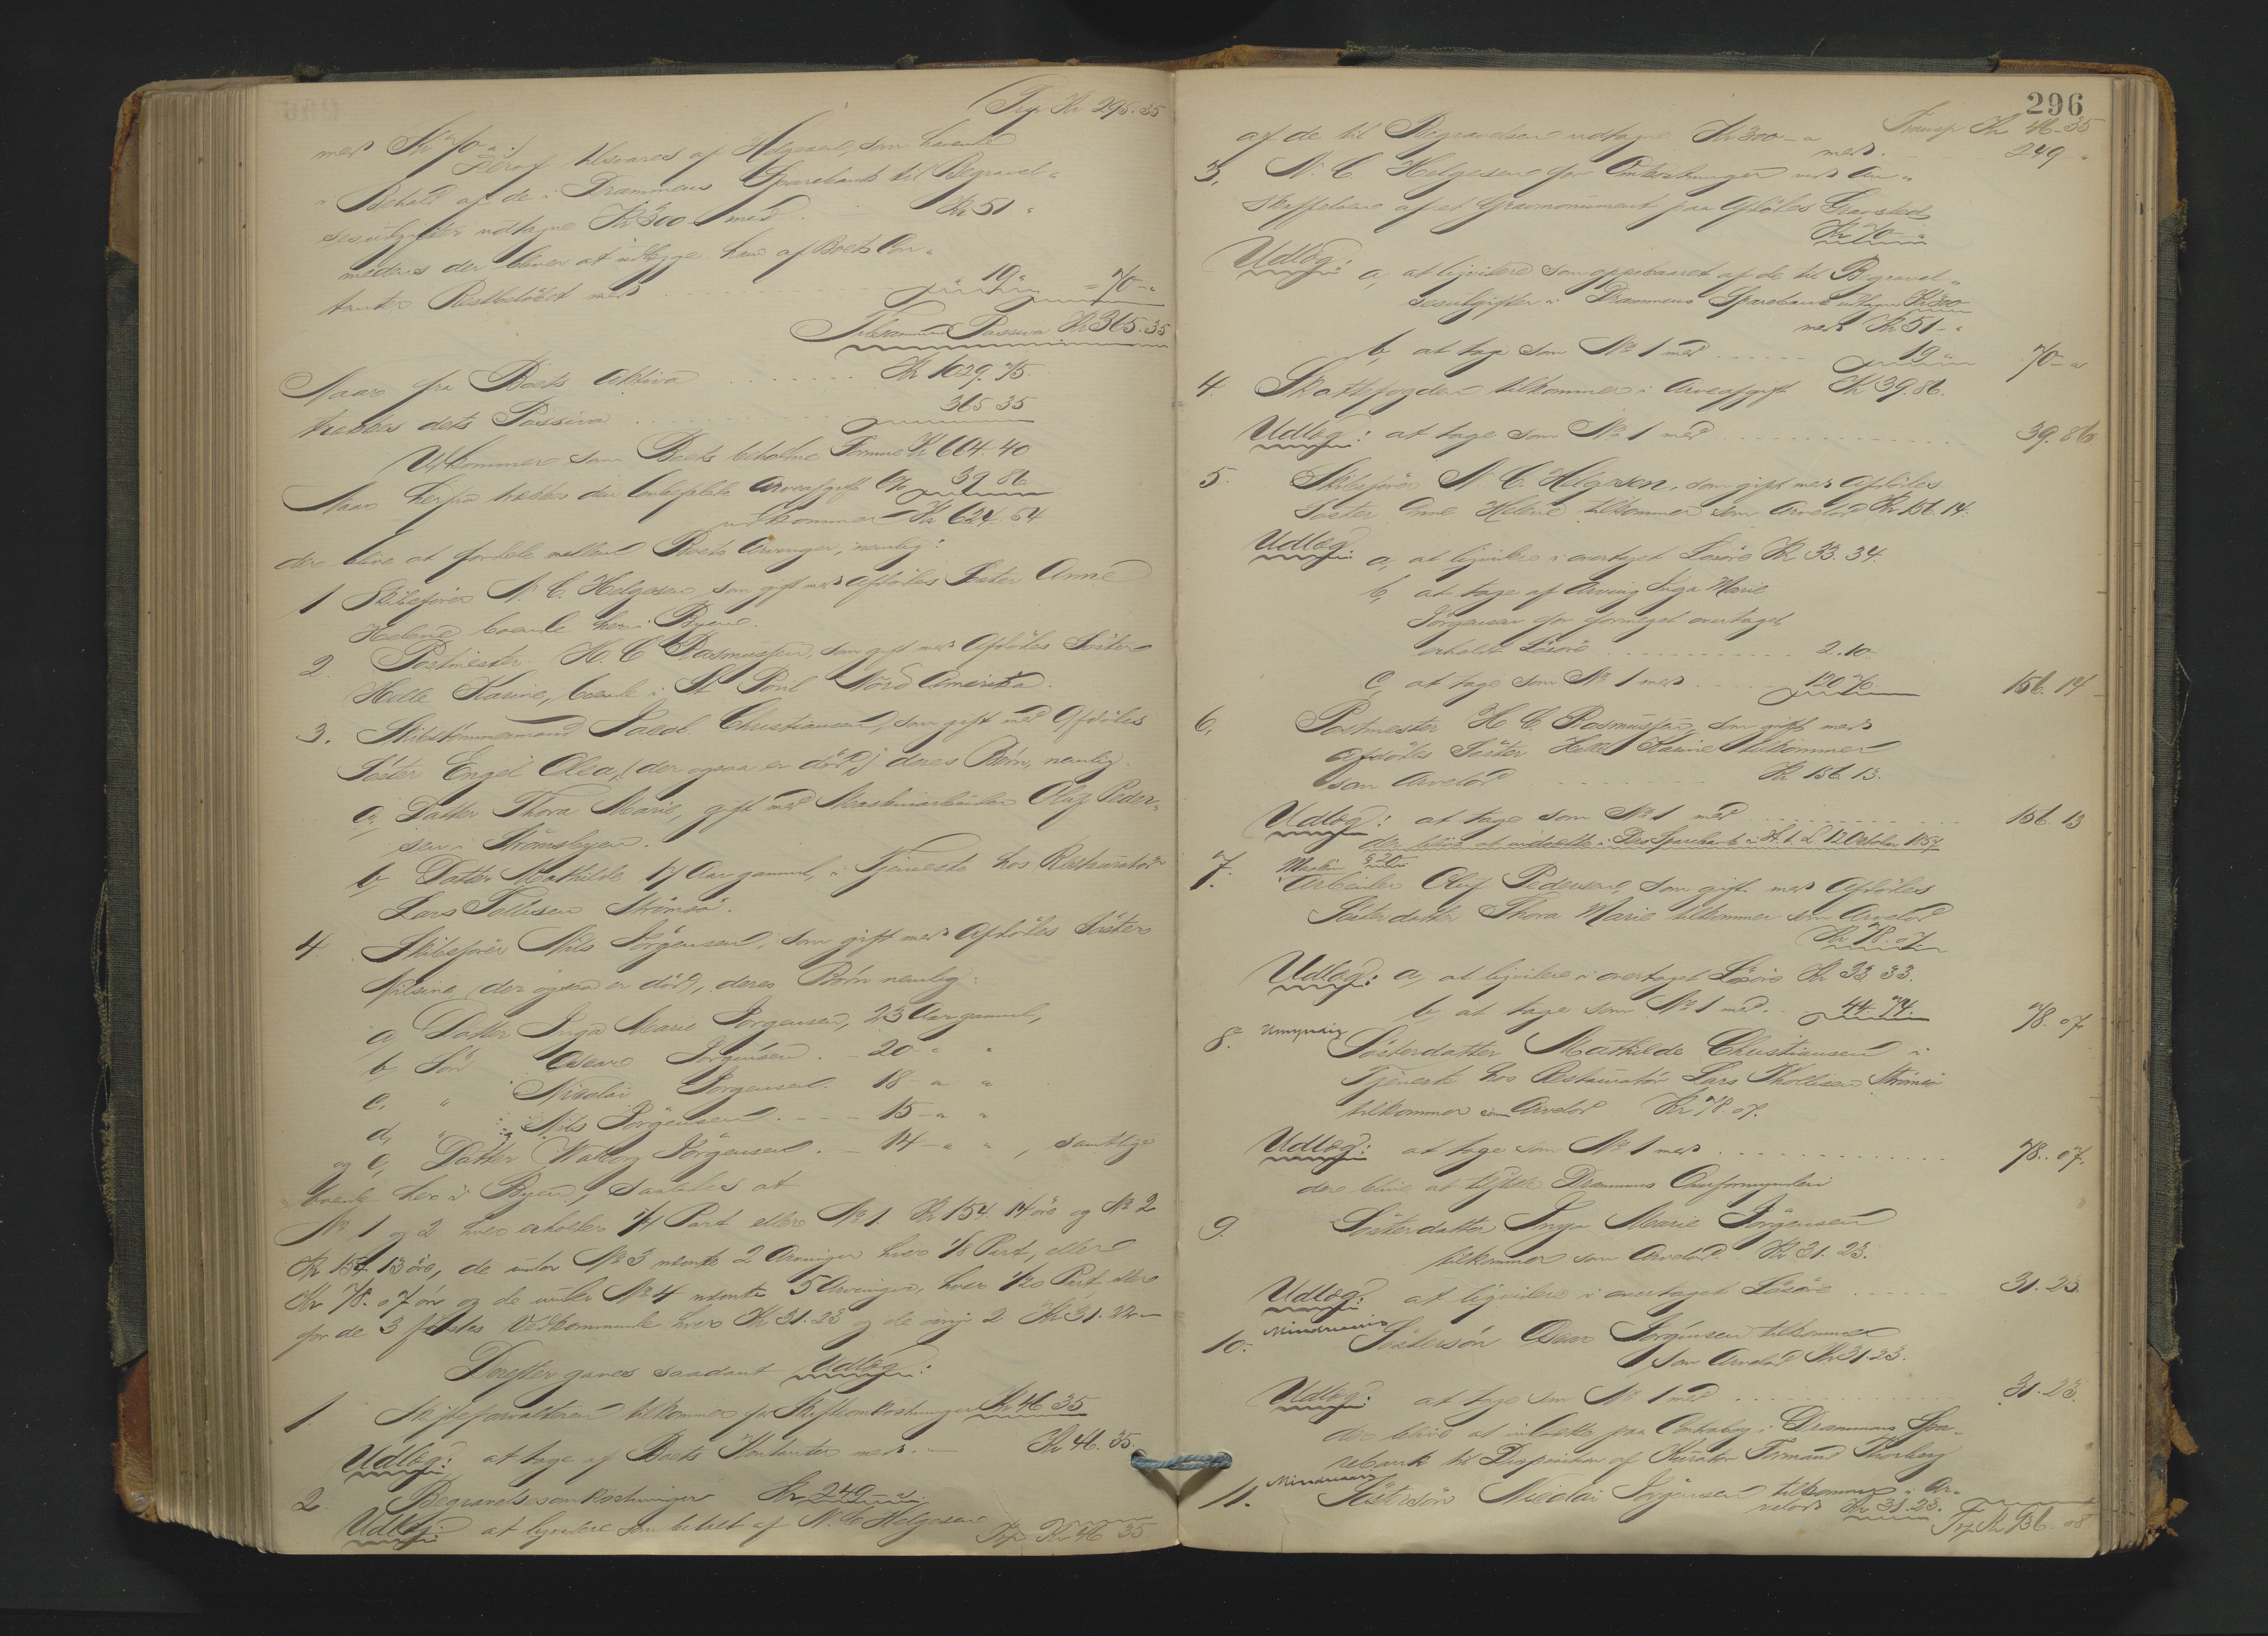 Trp Kr 295.35
med Kr 70 "
Heraf tilsvares af Helgesen, som havende
i Behold af de i Drammens Sparebank til Begravel-
sesutgifter udtagne Kr 300 med Kr 51 "
medens der bliver at udlægge ham af Boets Con-
tanter Restbeløbet med " 19 " = 70 - "
Tilsammen Passiva Kr 365.35
Naar fra Boets Aktiva Kr 1029.75
trækkes dets Passiva 365 35
Udkommer som Boets beholdne Formue Kr 664.40
Naar herfra trækkes den lovbefalede Arveafgift 6% 39 86
udkommer Kr 624.54
der blive at fordele mellem Boets Arvinger, nemlig:
1 Skibsfører N. C. Helgesen, som gift med Afdødes Søster Anne
Helene boende her i Byen.
2. Postmester H. C. Rasmussen, som gift med Afdødes Søster
Helle Karine, boende i St Poul Nord Amerika.
3. Skibstømmermand Jacob Christiansen, som gift med Afdødes
Søster Engel Olea, (der ogsaa er død,) deres Børn, nemlig.
a, Datter Thora Marie, gift med Maskinarbeider Oluf Peder-
sen i Strømsbyen.
b, Datter Mathilde 17 Aar gammel, i Tjeneste hos Restauratør
Lars Tollisen Strømsø.
4 Skibsfører Nils Jørgensen, som gift med Afdødes Søster
Nilsine (der ogsaa er død), deres Børn nemlig:
a, Datter Inga Marie Jørgensen, 23 Aar gammel,
b, Søn Oscar Jørgensen. - 20 " "
c, " Nicolai Jørgensen. 18 - " "
d, " Nils Jørgensen. - 15 - " "
og e, Datter Valborg Jørgensen. - 14 - " " , samtlige
boende her i Byen, saaledes at
No 1 og 2 hver erholder 1/4 Part eller No 1. Kr 154.14 øre og No 2
Kr 154.13 øre, de under No 3 nævnte 2 Arvinger hver 1/8 Part, eller
Kr 78.07 øre og de under No 4 nævnte 5 Arvinger, hver 1/20 Part, eller
for de 3 førstes Vedkommende hver Kr 31.23 og de øvrige 2 Kr 31.22 -
Derefter gaves saadant Udlæg:
1 Skifteforvalteren tilkommer for Skifteomkostninger Kr 46 35
Udlæg: at tage af Boets Kontanter med. - Kr 46.35.
2. Begravelsesomkostninger Kr 249 - ".
Udlæg: at lignidere som betalt af N. C. Helgesen
Trp Kr 46 35
296
Transp Kr 46-35
af de til Begravelsen udtagne Kr 300 - " med. 249 "
3, N. C. Helgesen for Omkostninger ved An-
skaffelsen af et Gravmonument paa Afdødes Gravsted
Kr 70 - "
Udlæg: a, at lignidere som oppebaaret af de til Begravel-
sesutgifter i Drammens Sparebank udtagne Kr 300
med Kr 51 - "
b, at tage som No 1 med 19 " 70 - "
4. Skattefogden tilkommer i Arveafgift Kr 39.86.
Udlæg: at tage som No 1 med 39.86
5. Skibsfører N. C. Helgesen, som gift med Afdødes
Søster Anne Helene tilkommer som Arvelod Kr 156.14.
Udlæg. a, at lignidere i overtaget Løsøre Kr 33.34.
b, at tage af Arving Inga Marie
Jørgensen for formeget overtaget
erholdt Løsøre 2.10
c, at tage som No 1 med 120 70 156.14
6, Postmester H C. Rasmussen, som gift med
Afdødes Søster Helle Karine tilkommer
som Arvelod Kr 156 13.
Udlæg: at tage som No 1 med 156.13
der blive at indsætte i Drs Sparebank i H. t. L 12 October 1857
§ 20
7. Maskin
Arbeider Oluf Pedersen, som gift med Afdødes
Søsterdatter Thora Marie tilkommer som Arvelod
Kr 78.07
Udlæg: a, at lignidere i overtaget Løsøre Kr 33 33.
b at tage som No 1 med. 44.74. 78.07
8. Umyndig
Søsterdatter Mathilde Christiansen i
Tjeneste hos Restauratør Lars Thollisen Strømsø
tilkommer som Arvelod Kr 78.07.
Udlæg: at tage som No 1 med 78.07.
der blive at tilstille Drammens Overformynderi
9. Søsterdatter Inga Marie Jørgensen
tilkommer som Arvelod. Kr 31.23.
Udlæg. at lignidere i overtaget Løsøre 31.23.
10. Mindreaarig
Søstersøn Oscar Jørgensen tilkommer
som Arvelod Kr 31.23.
Udlæg: at tage som No 1 med 31.23.
der blive at indsætte paa Contrabog i Drammens Spa-
rebank til Disposition af Kurator Formand Thorberg
11. Mindreaarig
Søstersøn Nicolai Jørgensen tilkommer i Ar-
velod Kr 31.23.
Trp Kr 936.08